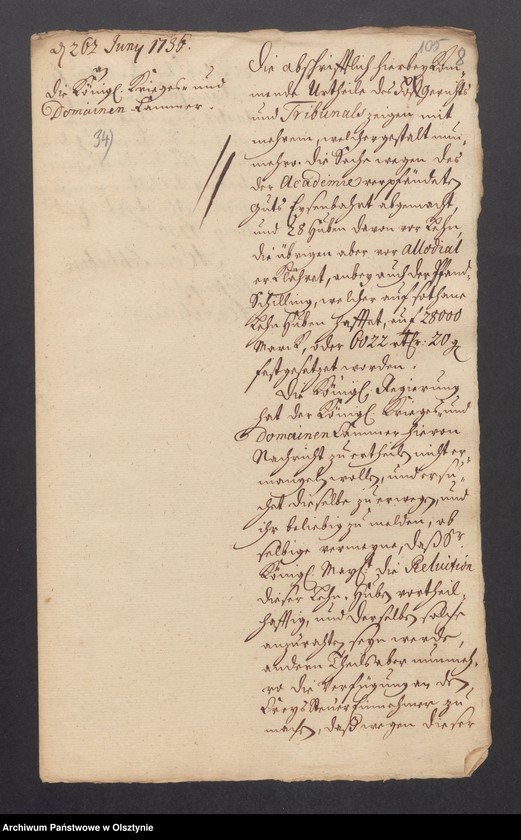 d 26t Juny 1736.
An
die Königl. Krieges- und
Domainen Cammer.
34)
105
8
Die abschrifftlich hierbey kom-
mende Urtheile des Hoffgerichts
und Tribunals zeigen mit
mehrem, welchergestalt nun-
mehro die Sache wegen des
der Academie verpfändeten
Guts abgemacht,
und 28 Huben davon vor Lehn,
die übrigen aber vor allodial
erklähret, anbey auch der Pfand-
Schilling, welcher auf sothane
Lehn Huben hafftet, auf 28000
Marck, oder 6022 rthr: 20 g
festgesetzet worden.
Die Königl. Regierung
hat der Königl. Krieges- und
Domainen Cammer hievon
Nachricht zu ertheilen nicht er-
mangeln wollen, und ersu-
chet dieselbe zu erwegen, und
ihr beliebig zu melden, ob
selbige vermeyne, daß Sr
Königl. Mayt. die Reluition
dieser Lehn-Huben vortheil-
hafftig, und derselben solche
anzurahten seyn werde,
andern Theils aber nunmeh-
ro die Verfügung an den
Creys Steuer Einnehmer zu
machen, daß wegen dieser
Archiwum Państwowe w Olsztynie